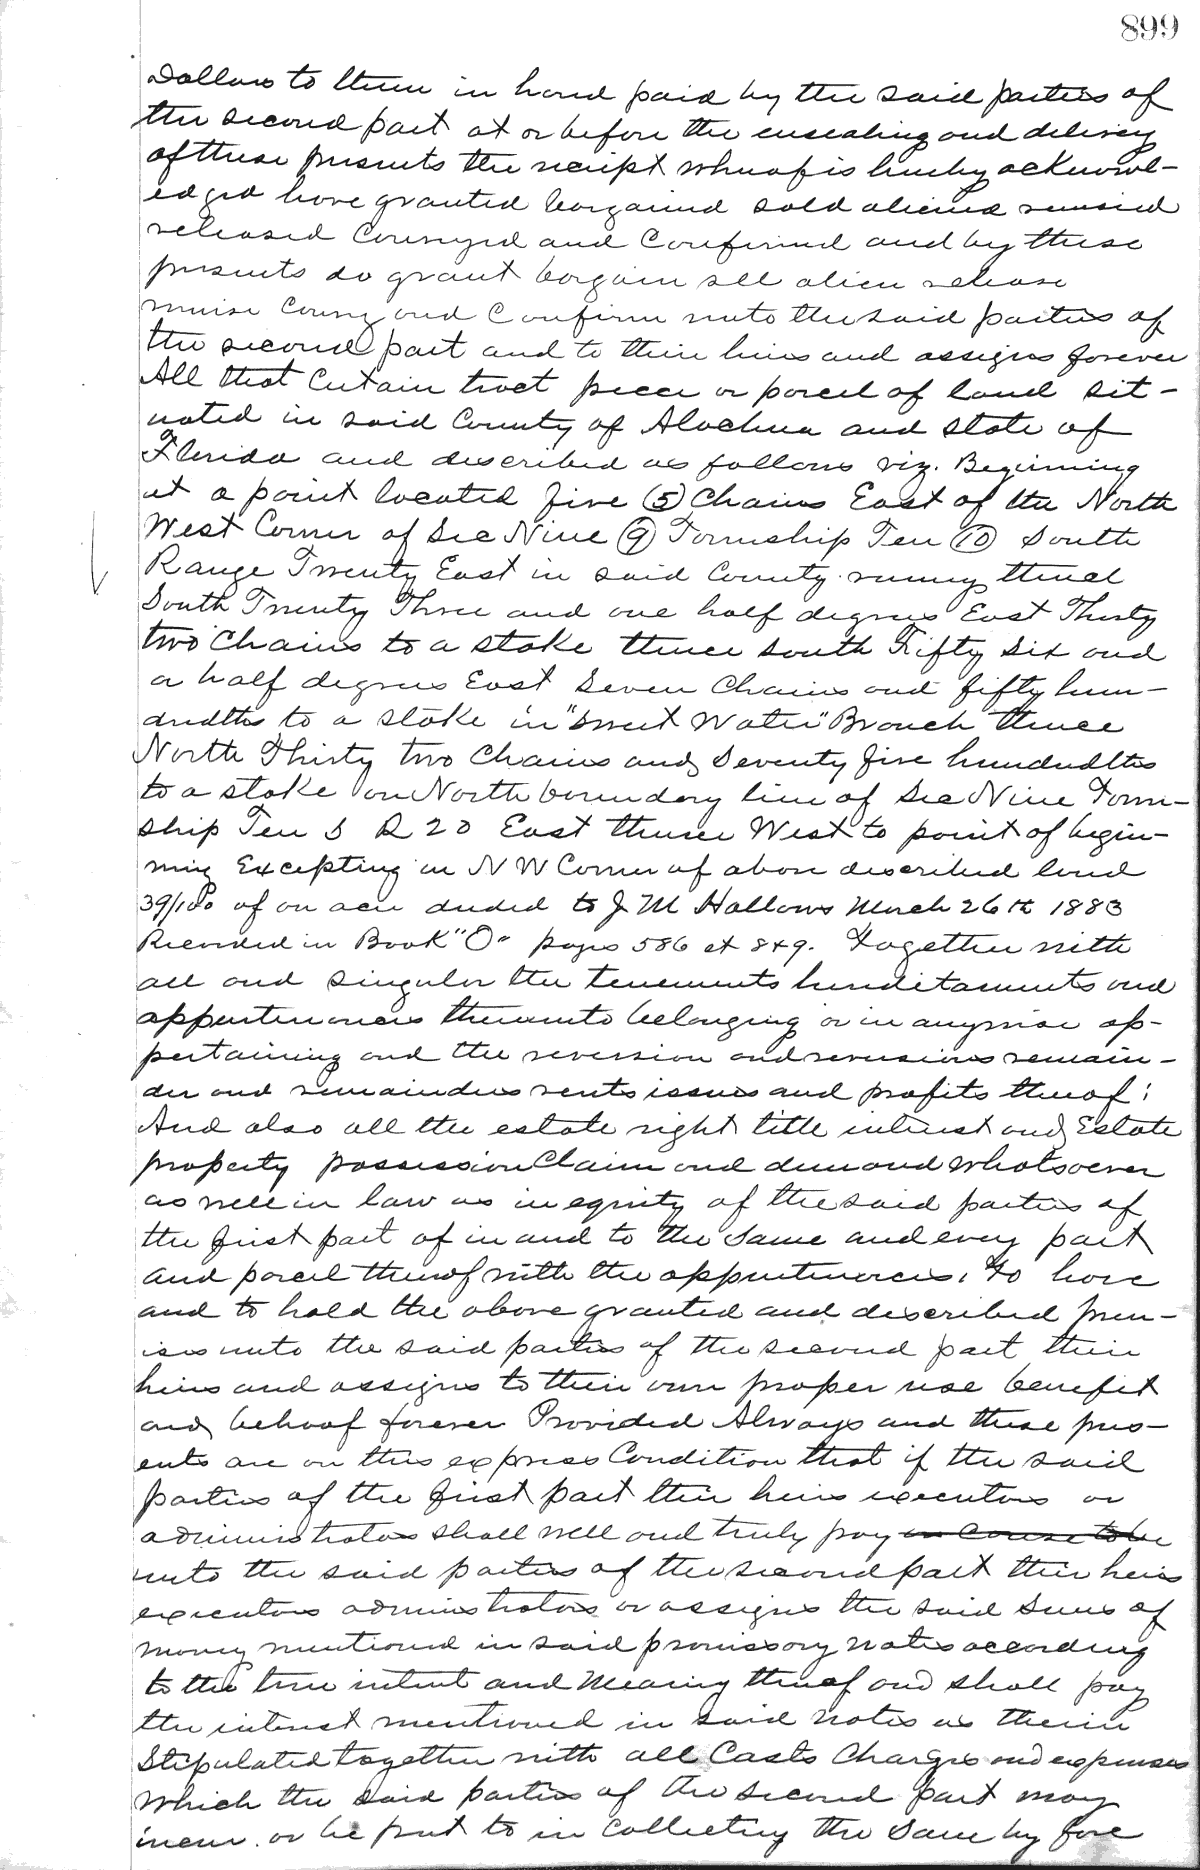 899
Dollars to them in hand paid by the said parties of
the second part at or before the ensealing and delivery
of these presents the receipt whereof is hereby acknowl-
edged have granted bargained sold aliened remised
released Conveyed and Confirmed and by these
presents do grant bargain sell alien release
remise Convey and Confirm unto the said parties of
the second part and to their heirs and assigns forever
All that Certain tract piece or parcel of land sit-
uated in said County of Alachua and state of
Florida and described as follows viz. Beginning
at a point located five (5) Chains East of the North
West Corner of Sec Nine (9) Township Ten (10) South
Range Twenty East in said County runing thence
South Twenty Three and one half degrees East Thirty
two Chains to a stake thence south Fifty Six and
a half degrees East Seven Chains and fifty hun-
dredths to a stake in "Sweet Water" Branch thence
North Thirty two Chains and Seventy five hundredths
to a stake on North boundary line of Sec Nine Town-
ship Ten S R 20 East thence West to point of begin-
ning Excepting in N W Corner of above described land
39/100 of an acre deeded to J M Hallows March 26th 1883
Recorded in Book "O" pages 586 et 849. Together with
all and singular the tenements hereditaments and
appurtenances thereunto belonging or in anywise ap-
pertaining and the reversion and reversions remain-
der and remainders rents issues and profits thereof;
And also all the estate right title interest and Estate
property possession Claim and demand whatsoever
as well in law as in equity of the said parties of
the first part of in and to the same and every part
and parcel thereof with the appurtenances, To have
and to hold the above granted and described prem-
ises unto the said parties of the second part their
heirs and assigns to their own proper use benefit
and behoof forever Provided Always and these pres-
ents are on this express Condition that if the said
parties of the first part their heirs executors or
administrators shall well and truly pay or Cause to be
unto the said parties of the second part their heirs
executors administrators or assigns the said sums of
money mentioned in said promissory notes according
to the true intent and Meaning thereof and shall pay
the interest mentioned in said notes as therein
Stipulated together with all Costs Charges and expenses
which the said parties of the second part may
incur or be put to in Collecting the same by fore